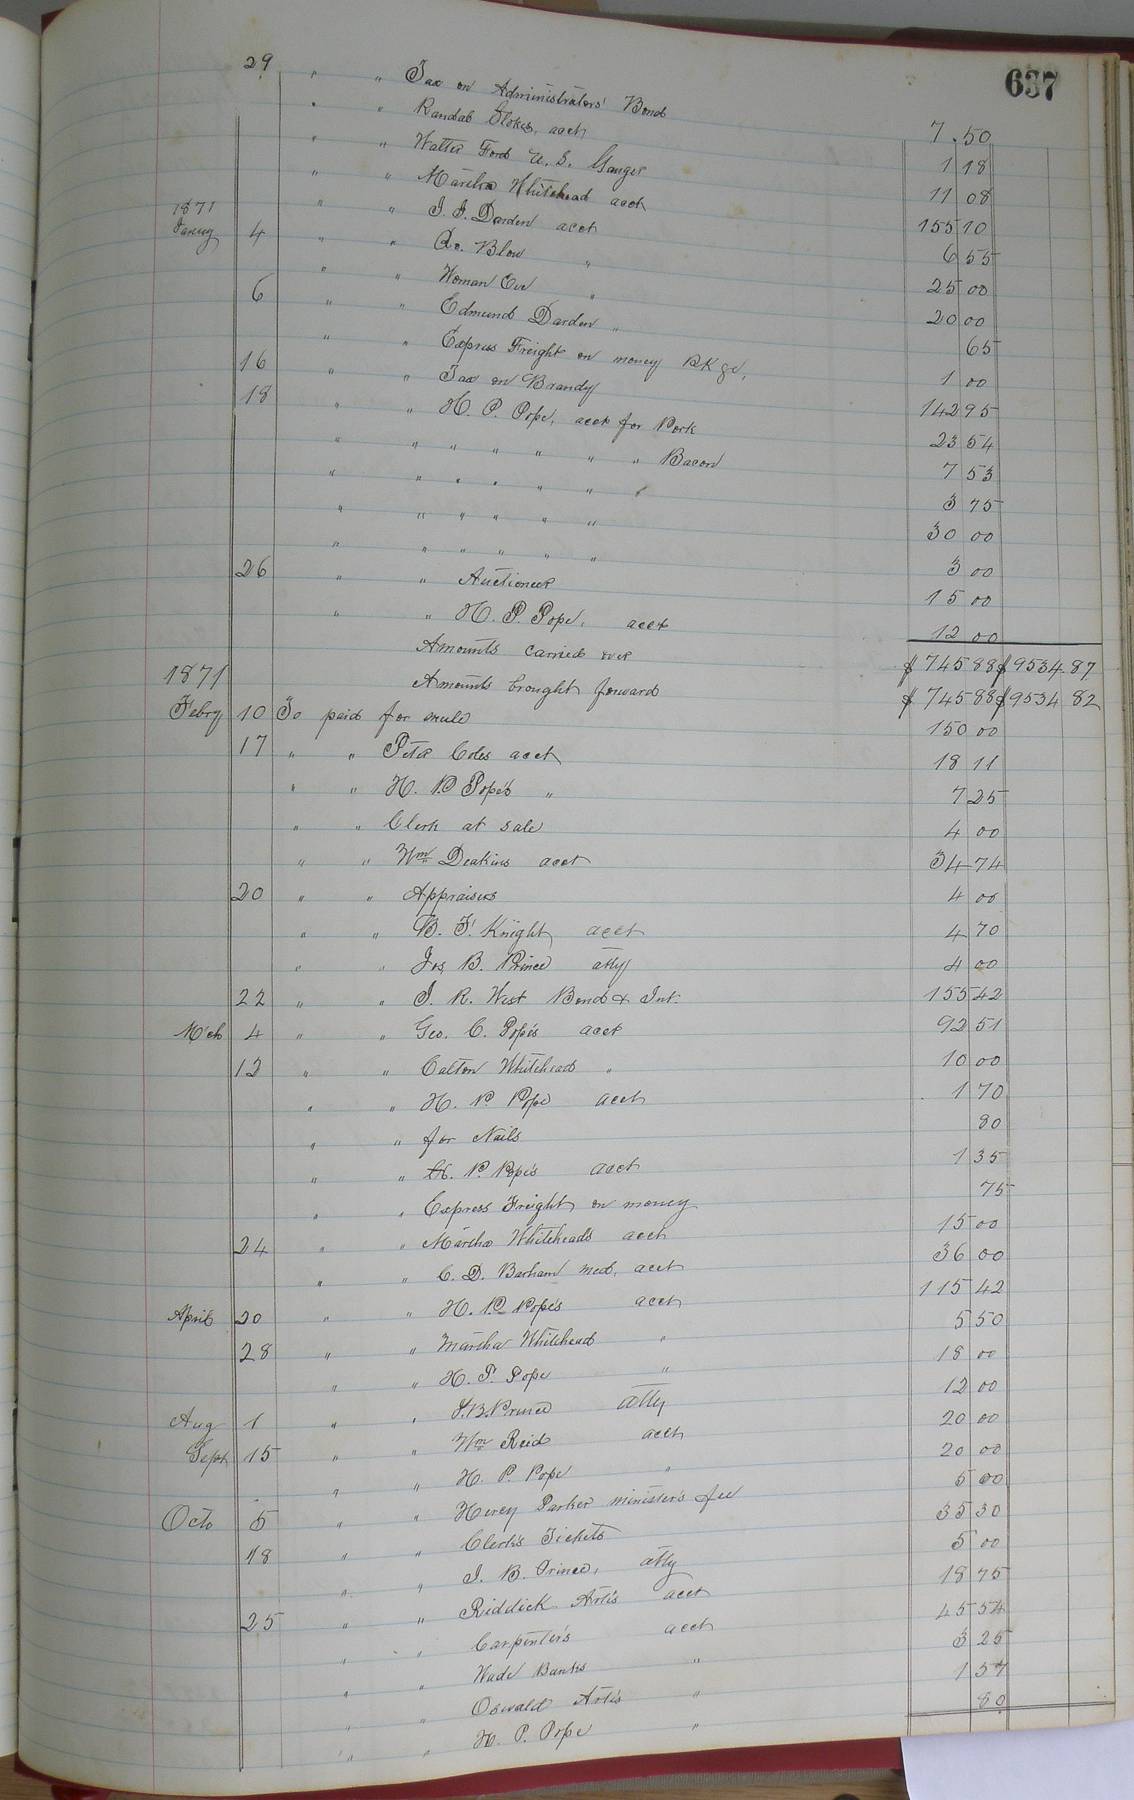 637
29 " " Tax on Administrators' Bond 7.50
" " Randal Stokes, acct 1 18
" " Walter Ford U. S. Gauger 11 08
" " Martha Whitehead acct 155 10
" " J. J. Darden acct 6 55
1871
Janury 4 " " Ro. Blow " 25 00
" " Woman Eve " 20 00
6 " " Edmund Darden " 65
" " Express Freight on money RK &c, 1 00
16 " " Tax on Brandy 142 95
18 " " H. P. Pope, acct for Pork 23 54
" " " " " " " Bacon 7 53
" " " " " " " 3 75
" " " " " " 30 00
" " " " " " 3 00
26 " " Auctioneer 15 00
" " H. P. Pope, acct 12 00
Amounts carried over $ 745 88 $ 9534 87
1871 Amounts brought forward $ 745 88 $ 9534 82
Febry 10 To paid for mule 150 00
17 " " Peter Coles acct 18 11
" " H. P. Pope's " 7 25
" " Clerk at sale 4 00
" " Wm Deakins acct 34 74
20 " " Appraisers 4 00
" " B. F. Knight acct 4 70
" " Jos. B. Prince atty 4 00
22 " " J. R. West Bond & Int: 155 42
Mch 4 " " Geo. C. Pope's acct 92 51
12 " " Calton Whitehead " 10 00
" " H. P. Pope acct 1 70
" " for Nails 80
" " H. P. Pope's acct 1 35
" " Express Freight on money 75
24 " " Martha Whitehead's acct 15 00
" " C. D. Barham med. acct 36 00
April 20 " " H. P. Pope's acct 115 42
28 " " Martha Whitehead " 5 50
" " H. P. Pope " 18 00
Aug 1 " " J. B. Prince atty 12 00
Sept 15 " " Wm Reid acct 20 00
" " H. P. Pope " 20 00
Octo 5 " " Hervy Parker minister's fee 5 00
18 " " Clerk's Tickets 35 30
" " J. B. Prince, atty 5 00
25 " " Riddick Artis acct 18 75
" " Carpenter's acct 45 54
" " Wade Banks " 3 25
" " Oswald Artis " 1 57
" " H. P. Pope " 80